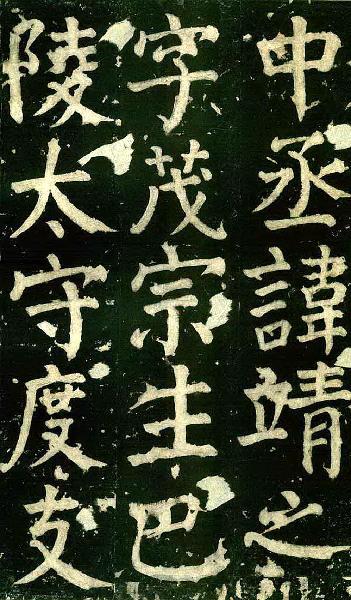 中丞諱靖之
字茂宗生巴
陵太守度支